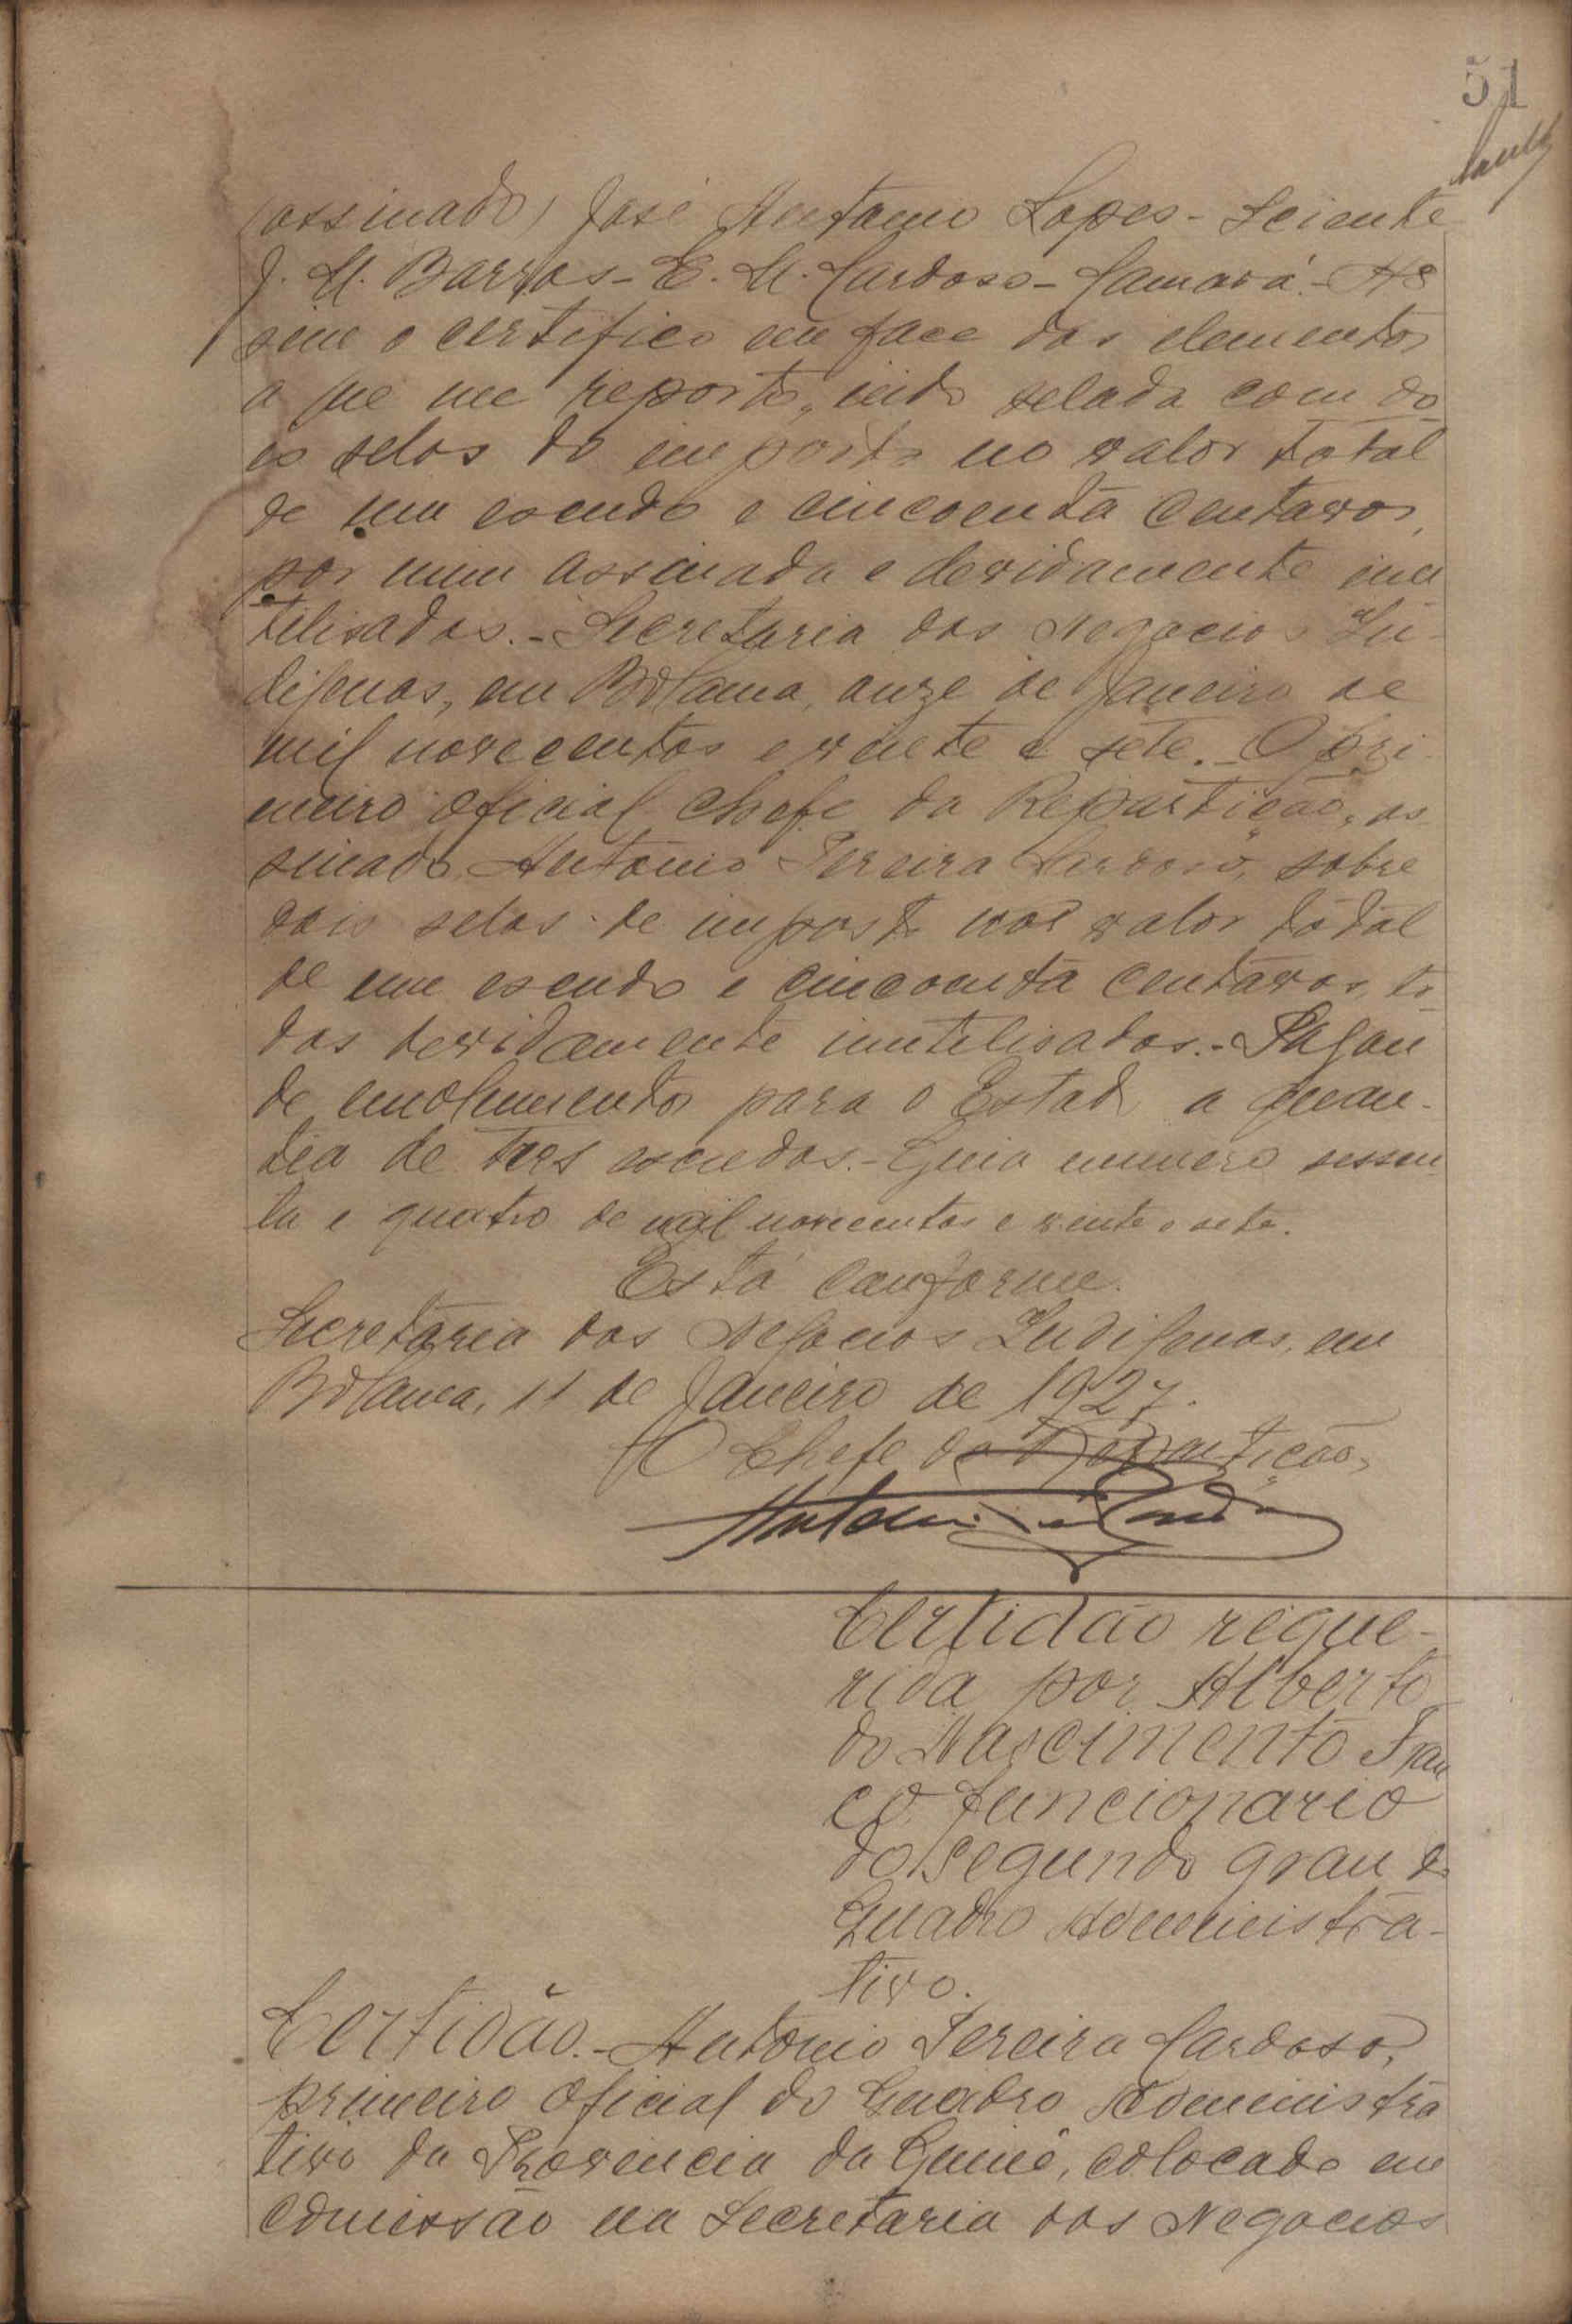 51
(assinado) José Antonio Lopes - Sciente
J. M. Barros - E. M. Cardoso - Camará. - As
sim o certifico em face dos elementos
a que me reporto, indo selada com do
is selos do imposto no valor total
de um escudo e cincoenta centavos,
por mim assinada e devidamente inu
tilisados. - Secretaria dos Negocios In-
digenas, em Bolama, onze de Janeiro de
mil novecentos e vinte e sete. - O pri-
meiro oficial chefe da Repartição, as
sinado, Antonio Pereira Cardoso, sobre
dois selos de imposto no valor total
de um escudo e cincoenta centavos, to
dos devidamente inutilisados. - Pagou
de emolumentos para o Estado a quan-
tia de tres escudos. - Guia numero sessen
ta e quatro de mil novecentos e vinte e sete.
Está conforme.
Secretaria dos Negocios Indigenas, em
Bolama, 11 de Janeiro de 1927.
O Chefe da Repartição,
Antonio
Certidão reque-
rida por Alberto
do Nascimento Fran
co, funcionario
do segundo grau do
Quadro Administra-
tivo.
Certidão. - Antonio Pereira Cardoso,
primeiro oficial do Quadro Administra
tivo da Provincia da Guiné, colocado em
comissão na Secretaria dos Negocios